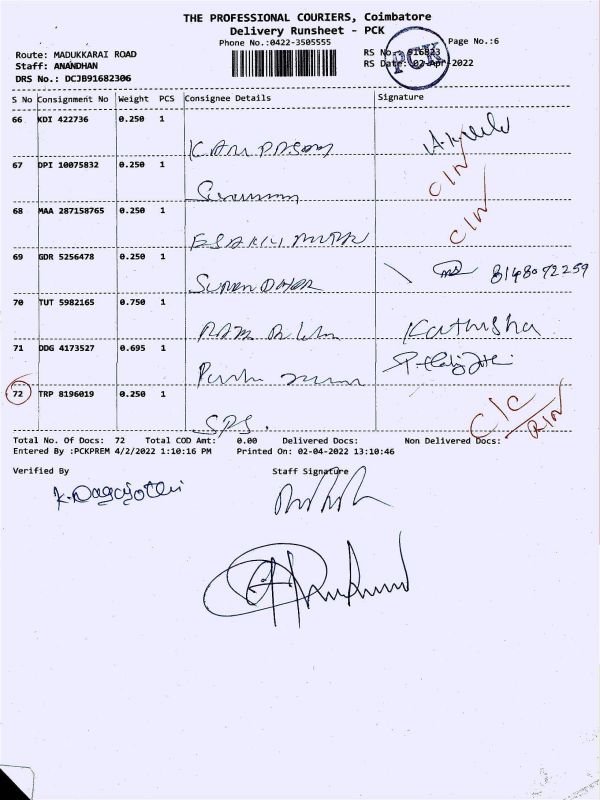 THE PROFESSIONAL COURIERS, Coimbatore
Delivery Runsheet - PCK
Phone No.:0422-3505555
Page No.:6
Route: MADUKKARAI ROAD
RS No.: 916823
Staff: ANANDHAN
RS Date: 02-Apr-2022
PCK
DRS No.: DCJB91682306
S No Consignment No Weight PCS Consignee Details Signature
66 KDI 422736 0.250 1
67 DPI 10075832 0.250 1
C/N
68 MAA 287158765 0.250 1
C/N
69 GDR 5256478 0.250 1
8148092259
70 TUT 5982165 0.750 1
Kathisha
71 DDG 4173527 0.695 1
72 TRP 8196019 0.250 1
SPS.
C/C
R/N
Total No. Of Docs: 72 Total COD Amt: 0.00 Delivered Docs: Non Delivered Docs:
Entered By :PCKPREM 4/2/2022 1:10:16 PM Printed On: 02-04-2022 13:10:46
Verified By Staff Signature